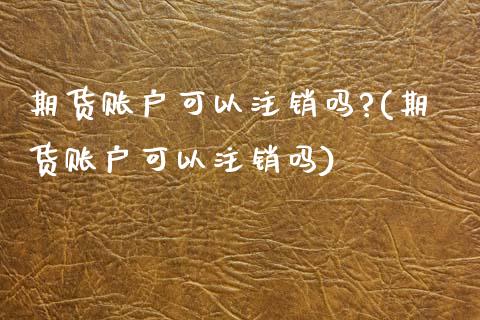 期货账户可以注销吗?(期
货账户可以注销吗)